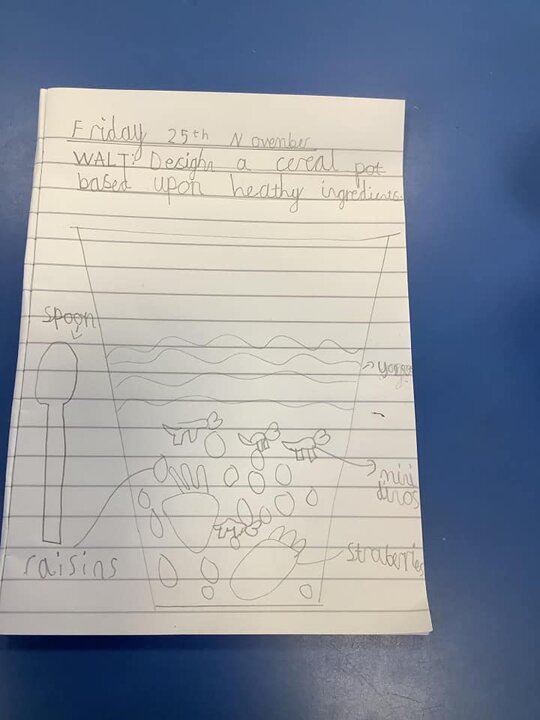 Friday 25th November
WALT: Design a cereal pot
based upon heathy ingredients.
spoon
mini
dinos
raisins
straberies